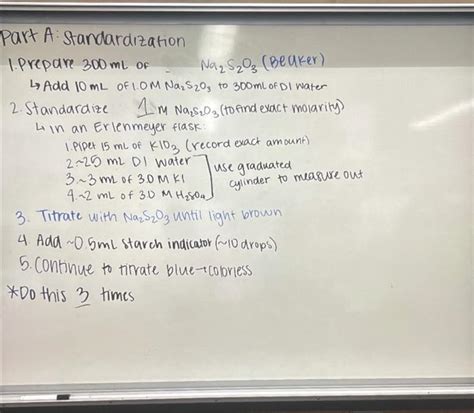 Part A: Standardization
1. Prepare 300 mL of Na₂S₂O₃ (Beaker)
↳ Add 10 mL of 1.0M Na₂S₂O₃ to 300mL of DI water
2. Standardize 1 M Na₂S₂O₃ (to find exact molarity)
↳ in an Erlenmeyer flask:
1. Pipet 15 mL of KIO₃ (record exact amount)
2. ~25 mL DI water
3. ~3 mL of 3.0 M KI
4. ~2 mL of 3.0 M H₂SO₄
use graduated
cylinder to measure out
3. Titrate with Na₂S₂O₃ until light brown
4. Add ~0.5mL starch indicator (~10 drops)
5. Continue to titrate blue→colorless
*Do this 3 times